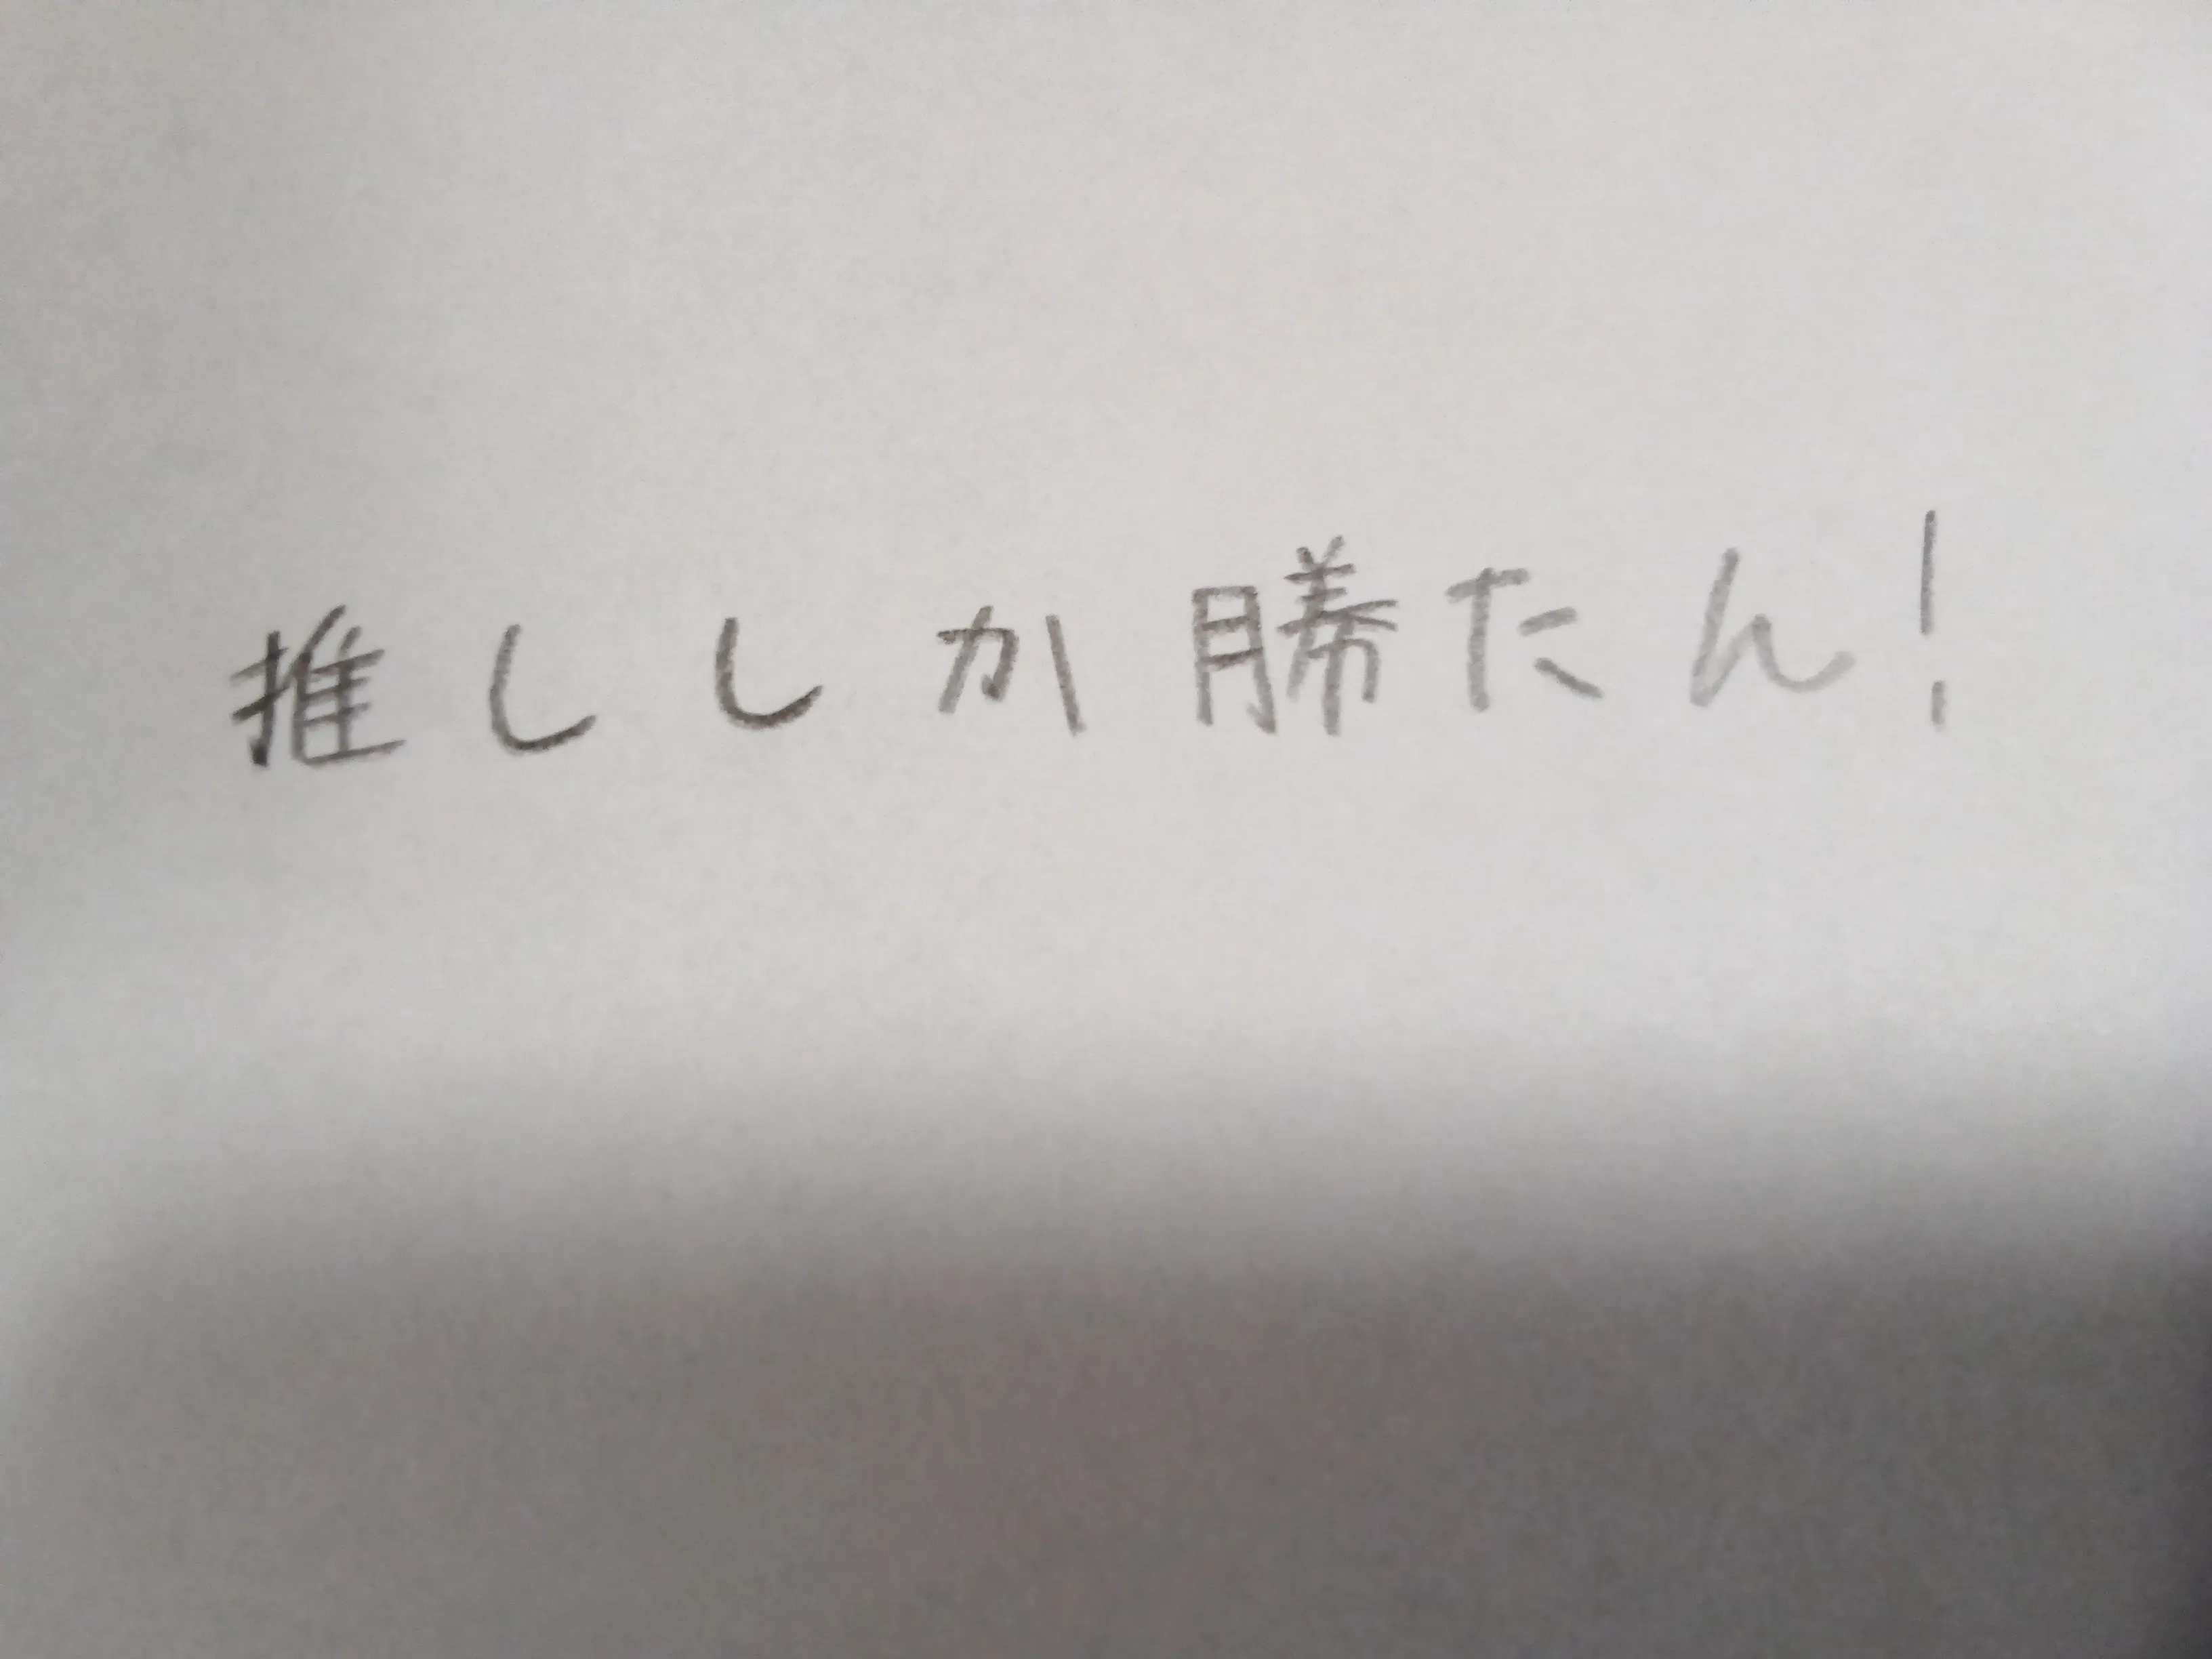 推ししか勝たん!